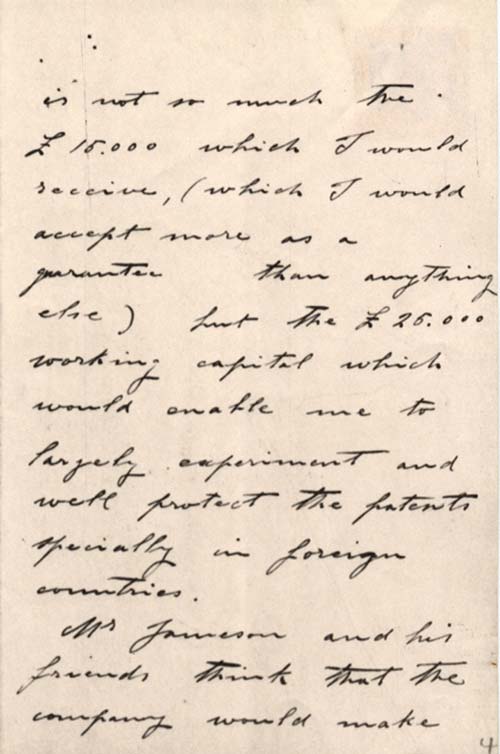 is not so much the
£ 15.000 which I would
receive, (which I would
accept more as a
guarantee than anything
else) but the £ 25.000
working capital which
would enable me to
largely experiment and
well protect the patents
specially in foreign
countries.
Mr Jameson and his
friends think that the
company would make
4